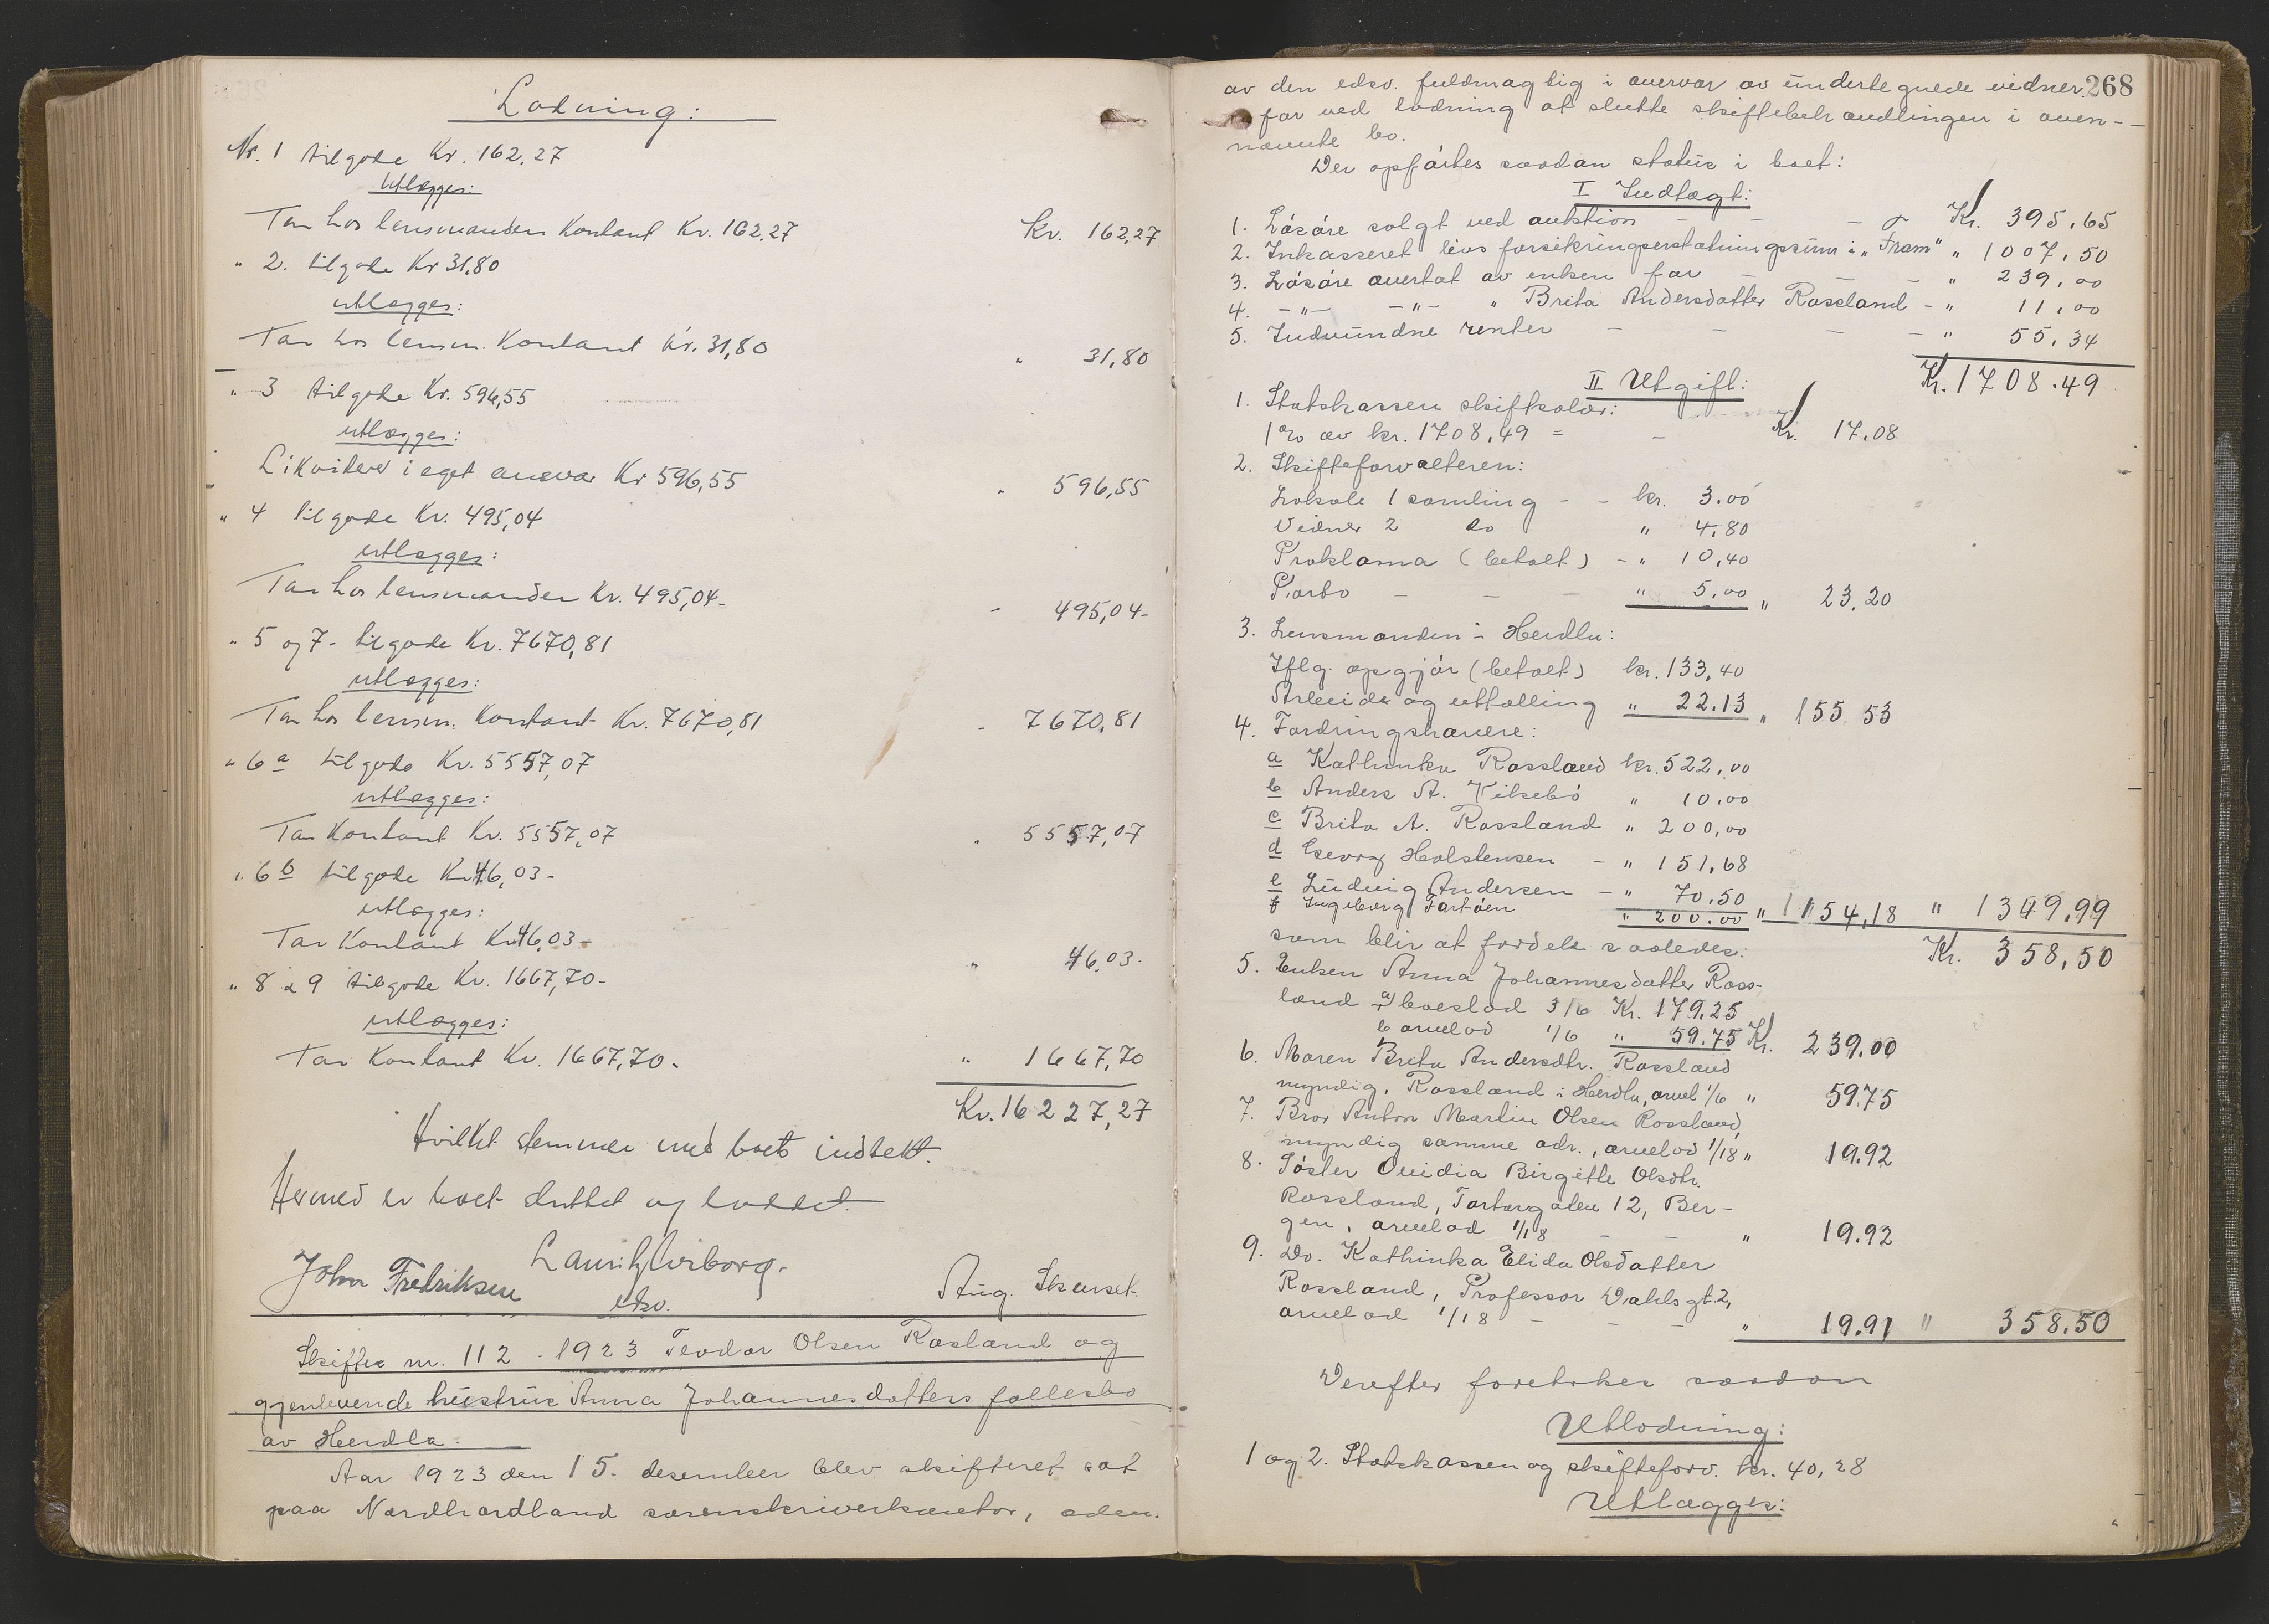 Lodning:
Nr. 1 tilgode Kr. 162.27
Utlægges:
Tar hos lensmanden Kontant Kr. 162.27 Kr. 162,27
" 2. tilgode Kr 31,80
utlægges:
Tar hos lensm. Kontant Kr. 31,80 " 31,80
" 3 tilgode Kr. 596,55
utlægges:
Likviderer i eget ansvar Kr 596,55 " 596,55
" 4 tilgode Kr. 495,04
utlægges:
Tar hos lensmanden Kr. 495,04- " 495,04-
" 5 og 7- tilgode Kr. 7670,81
utlægges:
Tar hos lensm. Kontant Kr. 7670,81 " 7670,81
" 6 a tilgode Kr. 5557,07
utlægges:
Tar Kontant Kr. 5557,07 " 5557,07
" 6 b tilgode Kr 46,03-
utlægges:
Tar Kontant Kr 46,03- " 46,03-
" 8 & 9 tilgode Kr. 1667,70-
utlægges:
Tar Kontant Kr. 1667,70- " 1667,70
Kr. 16227,27
Hvilket stemmer med boets indtekt.
Hermed er boet sluttet og loddet.
John Fredriksen edsv. Aug. Skarset.
Skifte nr. 112 - 1923 Teodor Olsen Rosland og
gjenlevende hustrus Anna Johannesdatters fællesbo
av Herdla.
Aar 1923 den 15. desember blev skifteret sat
paa Nordhordland sorenskriverkontor,
268
av den edsv. fuldmægtig i overvær av undertegnede vidner
for ved lodning at slutte skiftebehandlingen i oven-
nævnte bo.
Der opførtes saadan status i boet:
I Indtægt:
1. Løsøre solgt ved auktion - - - Kr. 395,65
2. Inkasseret livsforsikringserstatningssum i "Fram" " 1007,50
3. Løsøre overtat av enken for - - " 239,00
4. -"- -"- " Brita Andersdatter Rossland - " 11,00
5. Indvundne renter - - - - " 55,34
Kr. 1708.49
II Utgift:
1. Statskassen skiftsalær:
1% av kr. 1708,49 = - Kr. 17,08
2. Skifteforvalteren:
Lokale 1 samling - - kr. 3.00
Vidner 2 do " 4,80
Proklama (betalt) - " 10,40
Porto - - - " 5,00 " 23,20
3. Lensmanden i Herdla:
Iflg. opgjør (betalt) kr. 133,40
Arbeide og uttælling " 22.13 " 155.53
4. Fordringshavere:
a Kathinka Rossland kr. 522,00
b Anders A. Vikebø " 10,00
c Brita A. Rossland " 200,00
d Georg Holstensen - " 151,68
e Ludvig Andersen - " 70,50
f Ingeborg " 200.00 " 1154,18 " 1349,99
som blir at fordele saaledes: Kr. 358,50
5. Enken Anna Johannesdatter Ross-
land a) boeslod 3/6 Kr. 179.25
b arvelod 1/6 " 59.75 Kr. 239.00
6. Moren Brita Andersdtr. Rossland
myndig, Rossland i Herdla, arvel 1/6 " 59.75
7. Bror Anton Martin Olsen Rossland,
myndig samme adr., arvelod 1/18 " 19.92
8. Søster Ovidia Birgitte Olsdtr.
Rossland, Tartargaten 12, Ber-
gen, arvelod 1/18 - - " 19.92
9. Do. Kathinka Elida Olsdatter
Rossland, Professor Dahls gt. 2,
arvelod 1/18 - - - " 19.91 " 358.50
Derefter foretokes saadan
Utlodning:
1 og 2. Statskassen og skifteforv. kr. 40,28
Utlægges: